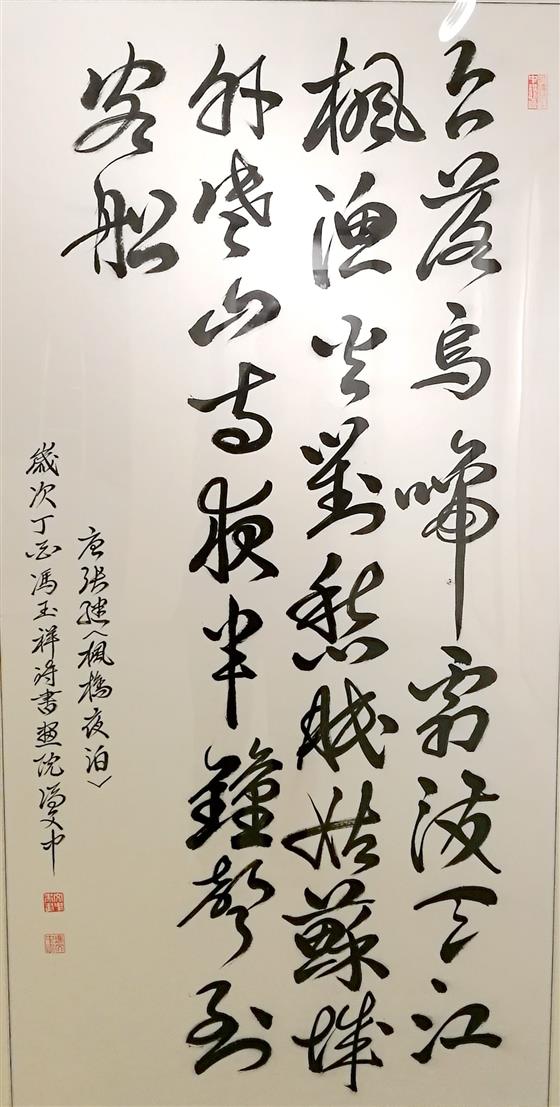 月落烏啼霜满天江
楓渔火對愁眠姑蘇城
外寒山寺夜半鐘聲到
客船
唐张继〈楓橋夜泊〉
歲次丁酉馮玉祥诗書畫院冯文中